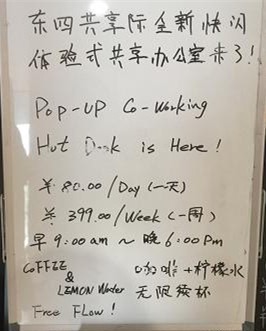 东四共享际全新快闪
体验式共享办公室来了!
POP-UP Co-Working
Hot Desk is Here!
¥80.00/Day(一天)
¥399.00/Week(一周)
早9:00am～晚6:00Pm
COFFEE 咖啡+柠檬水
& LEMON Water 无限续杯
Free Flow!